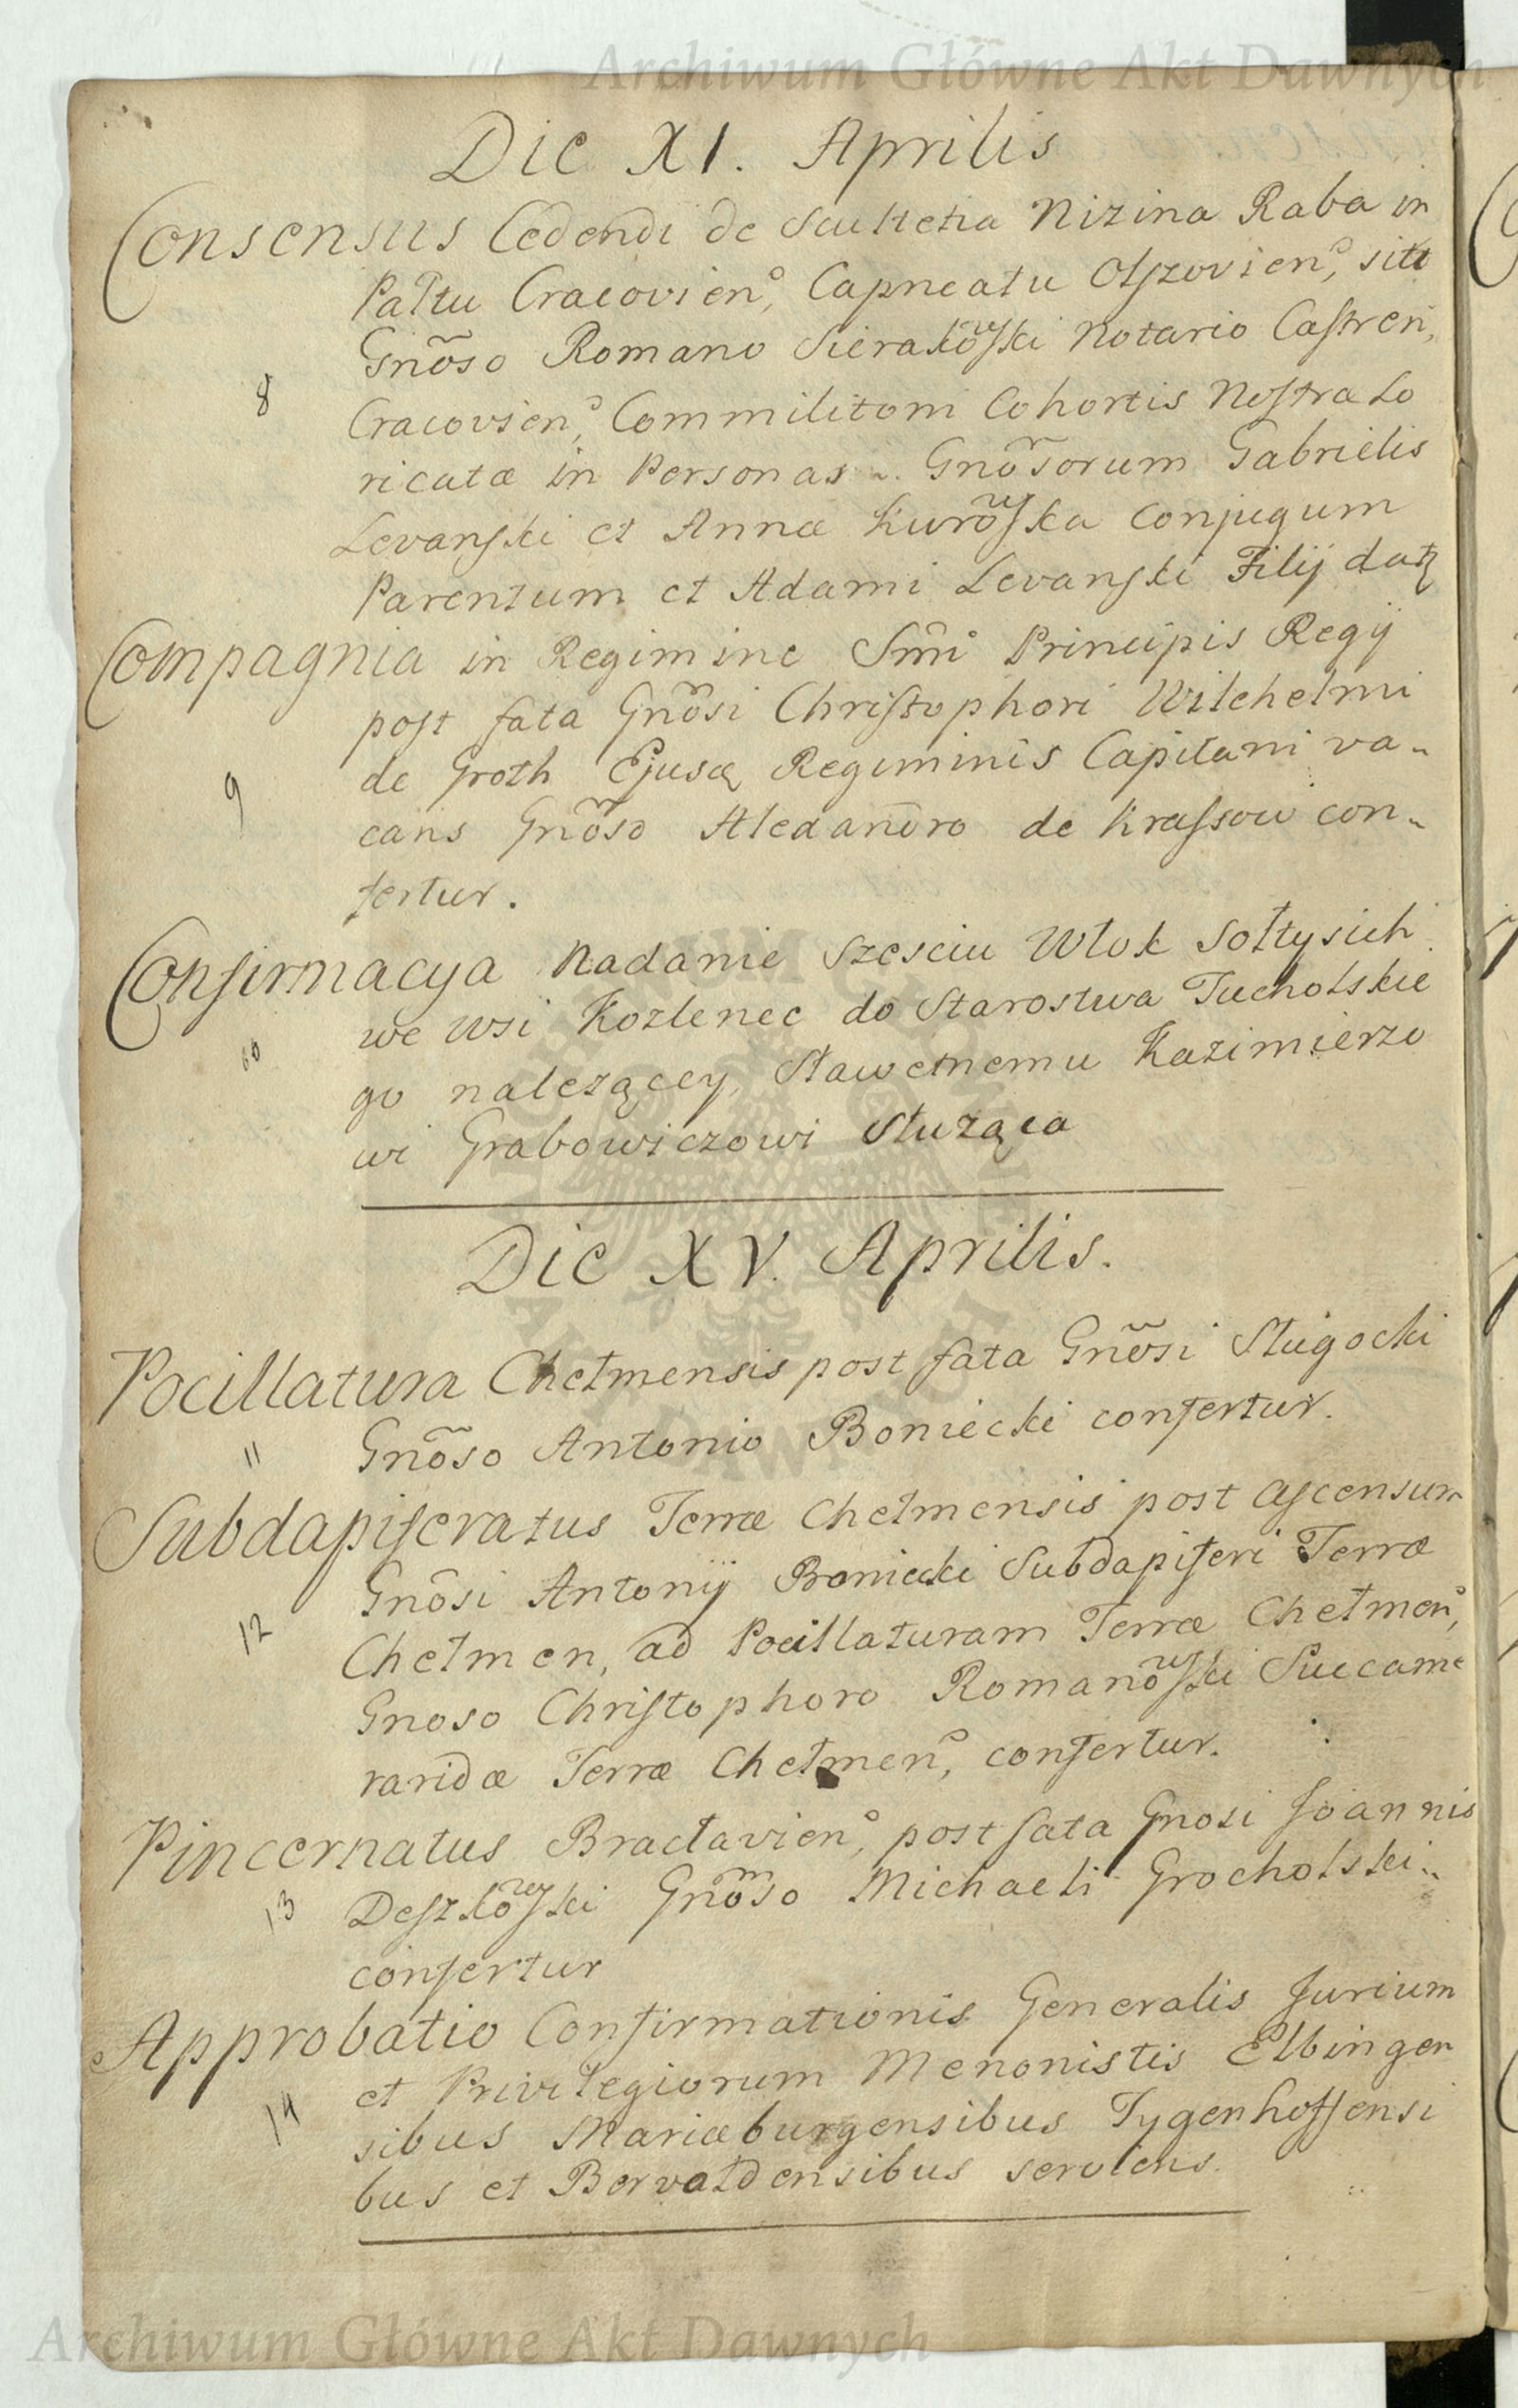 Archiwum Główne Akt Dawnych
Die XI. Aprilis
Consensus Cedendi de Scultetia Nizina Raba in
Paltu Cracovien, Capneatu Olszovien, sitt
8 Gnõso Romano Sierakowski Notario Castren,
Cracovien, Commilitoni Cohortis Nostra Lo
ricatæ in Personas Gnõsorum Gabrielis
Levanski et Annæ Kurowska Conjugum
Parentum et Adami Levanski Filij datq
Compagnia in Regimine Smi Principis Regij
post fata Gnõsi Christophori Wilchelmi
9 de Groth Ejusq Regiminis Capitani va-
cans Gnõso Alexandro de Krassow con-
fertur.
Confirmacya Nadanie Szesciu Włok Sołtysich
we Wsi Kozlenec do Starostwa Tucholskie
10 go nalezącey, Sławetnemu Kazimierzo
wi Grabowiczowi służąca
Die XV. Aprilis.
Pocillatura Chełmensis post fata Gnõsi Sługocki
11 Gnõso Antonio Boniecki confertur.
Subdapiferatus Terræ Chełmensis post ascensum
Gnõsi Antonij Boniecki Subdapiferi Terræ
12 Chełmen, ad Pocillaturam Terræ Chełmen,
Gnoso Christophoro Romanowski Succame
raridæ Terræ Chełmen, confertur.
Pincernatus Bracłavien, post fata Gnosi Joannis
13 Deszkowski Gnõso Michaeli Grocholski
confertur
Approbatio Confirmationis Generalis Jurium
et Privilegiorum Menonistis Elbingen
14 sibus Mariæburgensibus Tygenhoffensi
bus et Bervaldensibus serviens.
Archiwum Główne Akt Dawnych